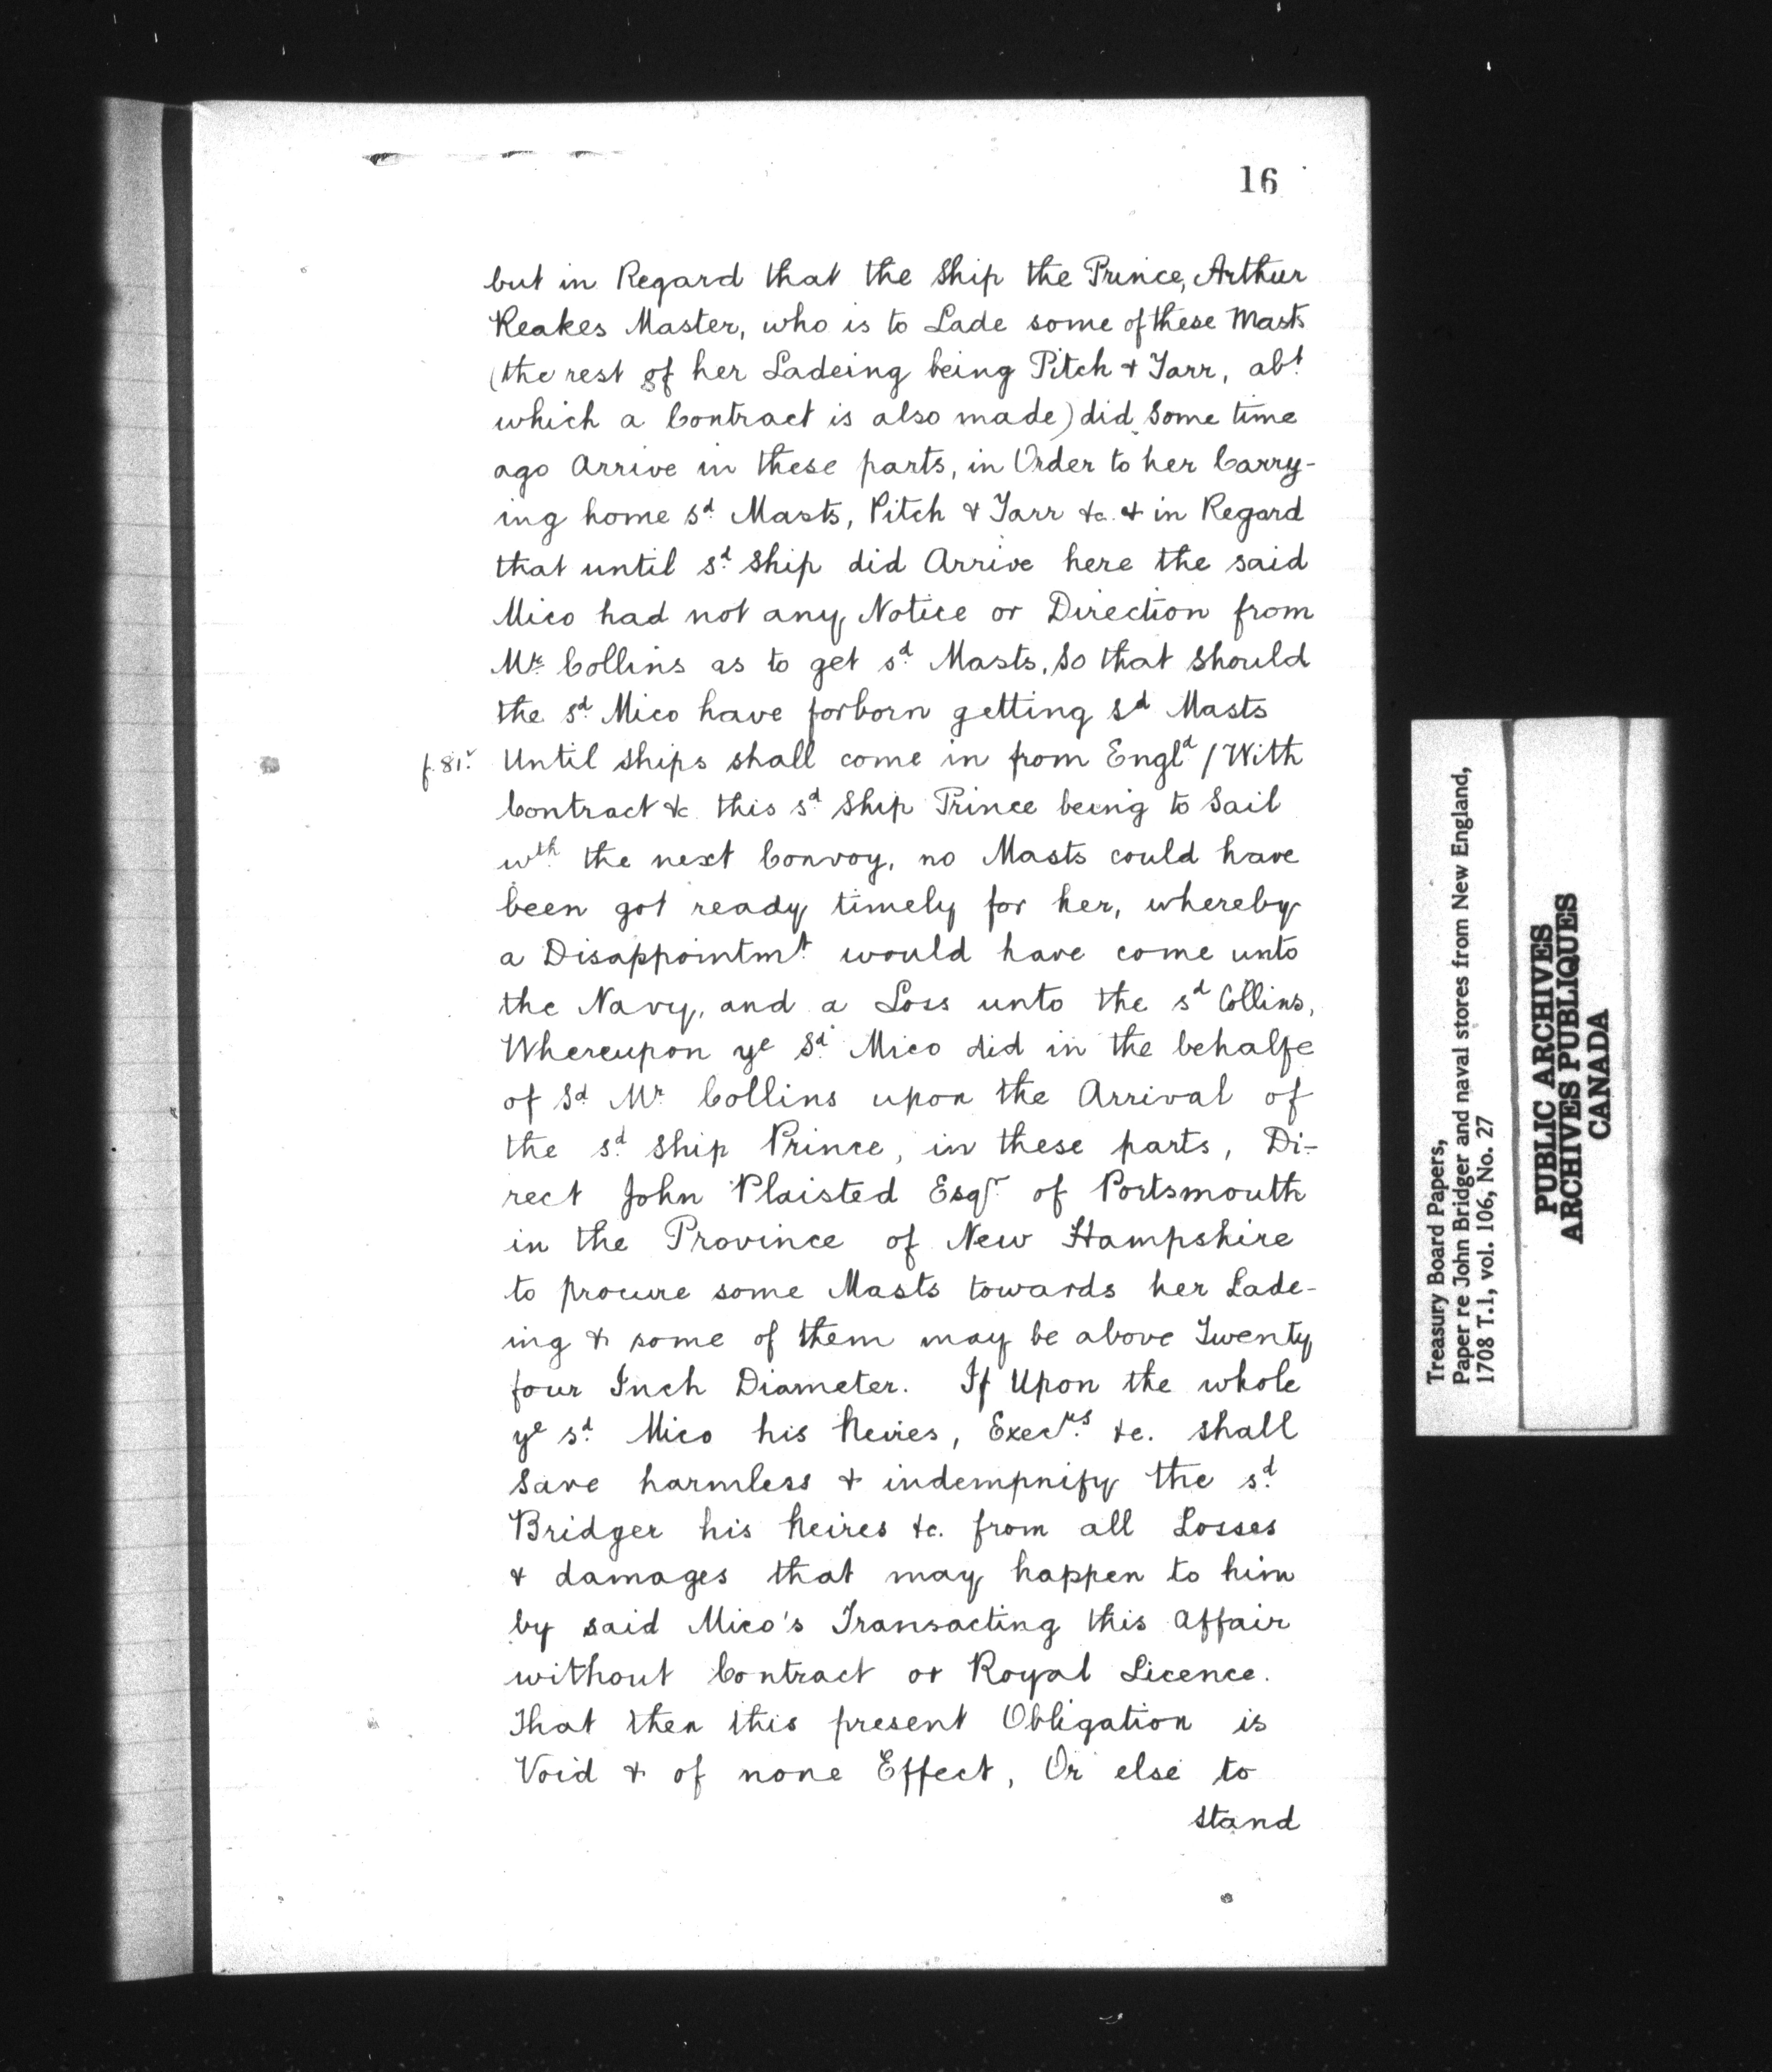 16
but in Regard that the Ship the Prince, Arthur
Keakes Master, who is to Lade some of these Masts
(the rest of her Ladeing being Pitch & Tarr, abt.
which a Contract is also made) did Some time
ago Arrive in these parts, in Order to her Carry-
ing home sd. Masts, Pitch & Tarr &c. & in Regard
that until sd. Ship did Arrive here the said
Mico had not any Notice or Direction from
Mr. Collins as to get sd. Masts, So that Should
the sd. Mico have forborn getting sd Masts
f. 81v. Until Ships shall come in from Engld / With
Contract &c. this sd. Ship Prince being to Sail
wth. the next Convoy, no Masts could have
been got ready timely for her, whereby
a Disappointmt. would have come unto
the Navy, and a Loss unto the sd Collins,
Whereupon ye Sd. Mico did in the behalfe
of Sd. Mr. Collins upon the Arrival of
the sd. Ship Prince, in these parts, Di-
rect John Plaisted Esqr. of Portsmouth
in the Province of New Hampshire
to procure some Masts towards her Lade-
ing & some of them may be above Twenty
four Inch Diameter. If Upon the whole
ye sd. Mico his heires, Execrs. &c. Shall
Save harmless & indempnify the sd.
Bridger his heires &c. from all Losses
& damages that may happen to him
by said Mico's Transacting this Affair
without Contract or Royal Licence.
That then this present Obligation is
Void & of none Effect, Or else to
stand
Treasury Board Papers,
Paper re John Bridger and naval stores from New England,
1708 T.1, vol. 106, No. 27
PUBLIC ARCHIVES
ARCHIVES PUBLIQUES
CANADA